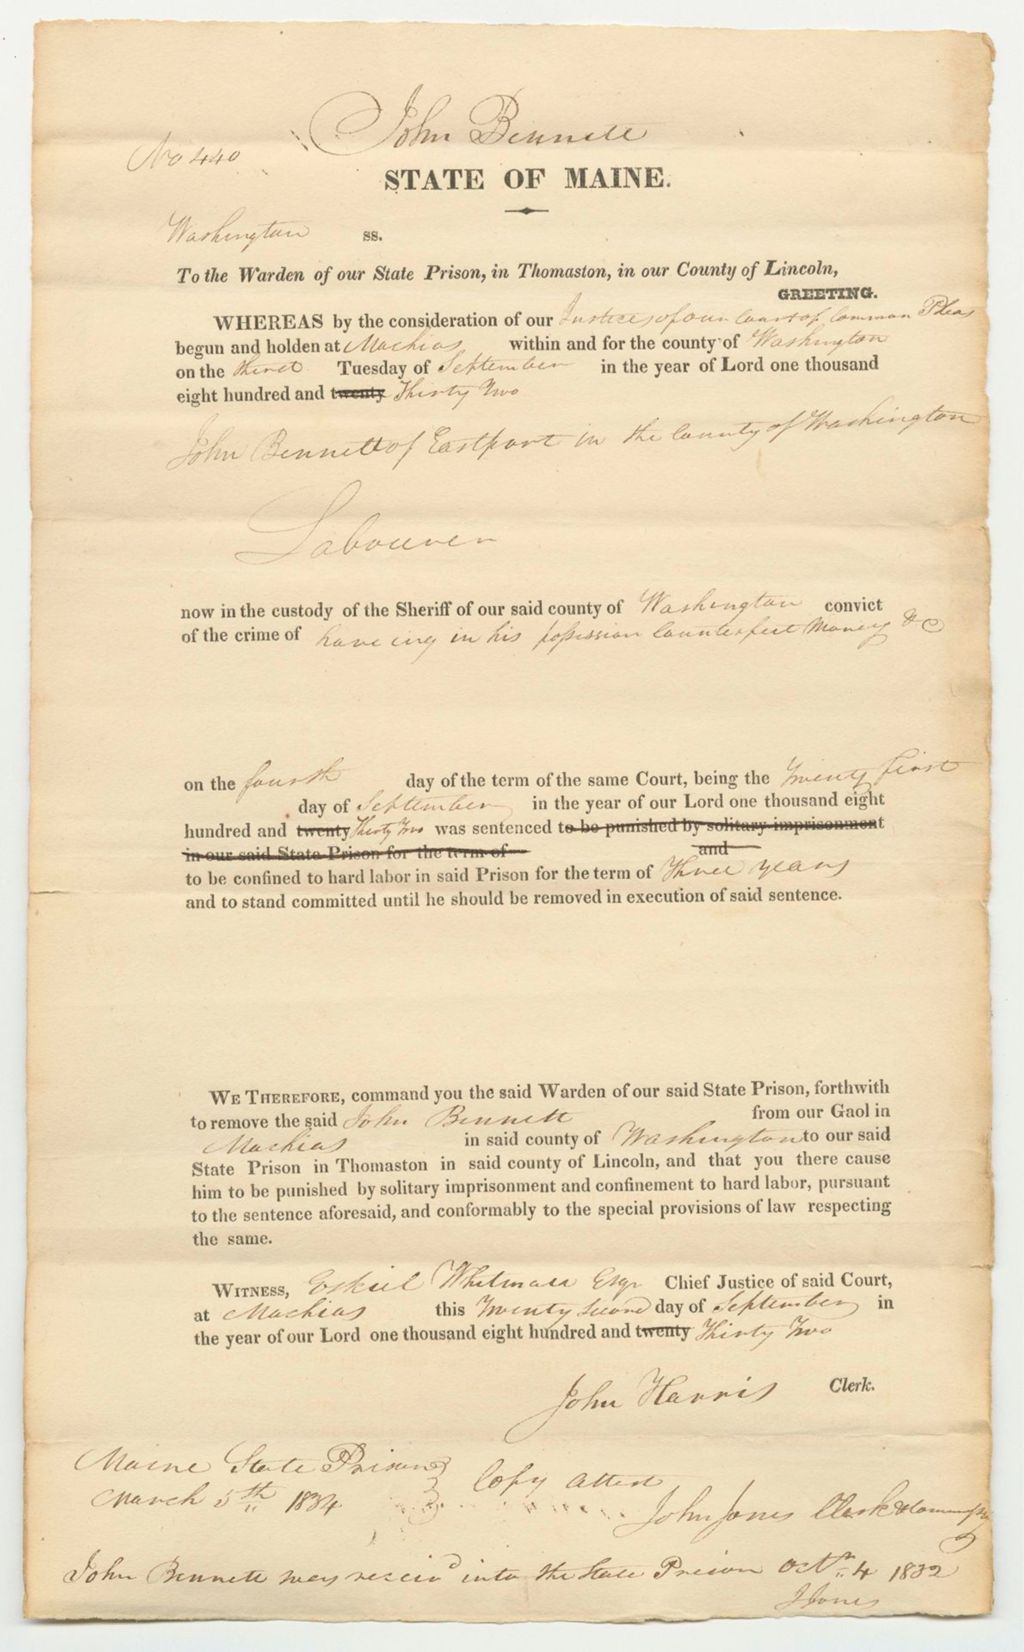 John Bennett
No 440
STATE OF MAINE.
Washington ss.
To the Warden of our State Prison, in Thomaston, in our County of Lincoln,
GREETING.
WHEREAS by the consideration of our Justices of our Court of Common Pleas
begun and holden at Machias within and for the county of Washington
on the third Tuesday of September in the year of Lord one thousand
eight hundred and twenty Thirty Two
John Bennett of Eastport in the County of Washington
Labourer
now in the custody of the Sheriff of our said county of Washington convict
of the crime of haveing in his possession Counterfeit Money &c
on the fourth day of the term of the same Court, being the Twenty first
day of September in the year of our Lord one thousand eight
hundred and twenty Thirty Two was sentenced to be punished by solitary imprisonment
in our said State Prison for the term of and
to be confined to hard labor in said Prison for the term of Three years
and to stand committed until he should be removed in execution of said sentence.
WE THEREFORE, command you the said Warden of our said State Prison, forthwith
to remove the said John Bennett from our Gaol in
Machias in said county of Washington to our said
State Prison in Thomaston in said county of Lincoln, and that you there cause
him to be punished by solitary imprisonment and confinement to hard labor, pursuant
to the sentence aforesaid, and conformably to the special provisions of law respecting
the same.
WITNESS, Eskiel Whitman Esqr Chief Justice of said Court,
at Machias this Twenty Second day of September in
the year of our Lord one thousand eight hundred and twenty Thirty Two
John Harris Clerk.
Maine State Prison
March 5th 1834
Copy Attest
John Jones Clerk
John Bennett was receivd into the State Prison Octr 4 1832
J Jones